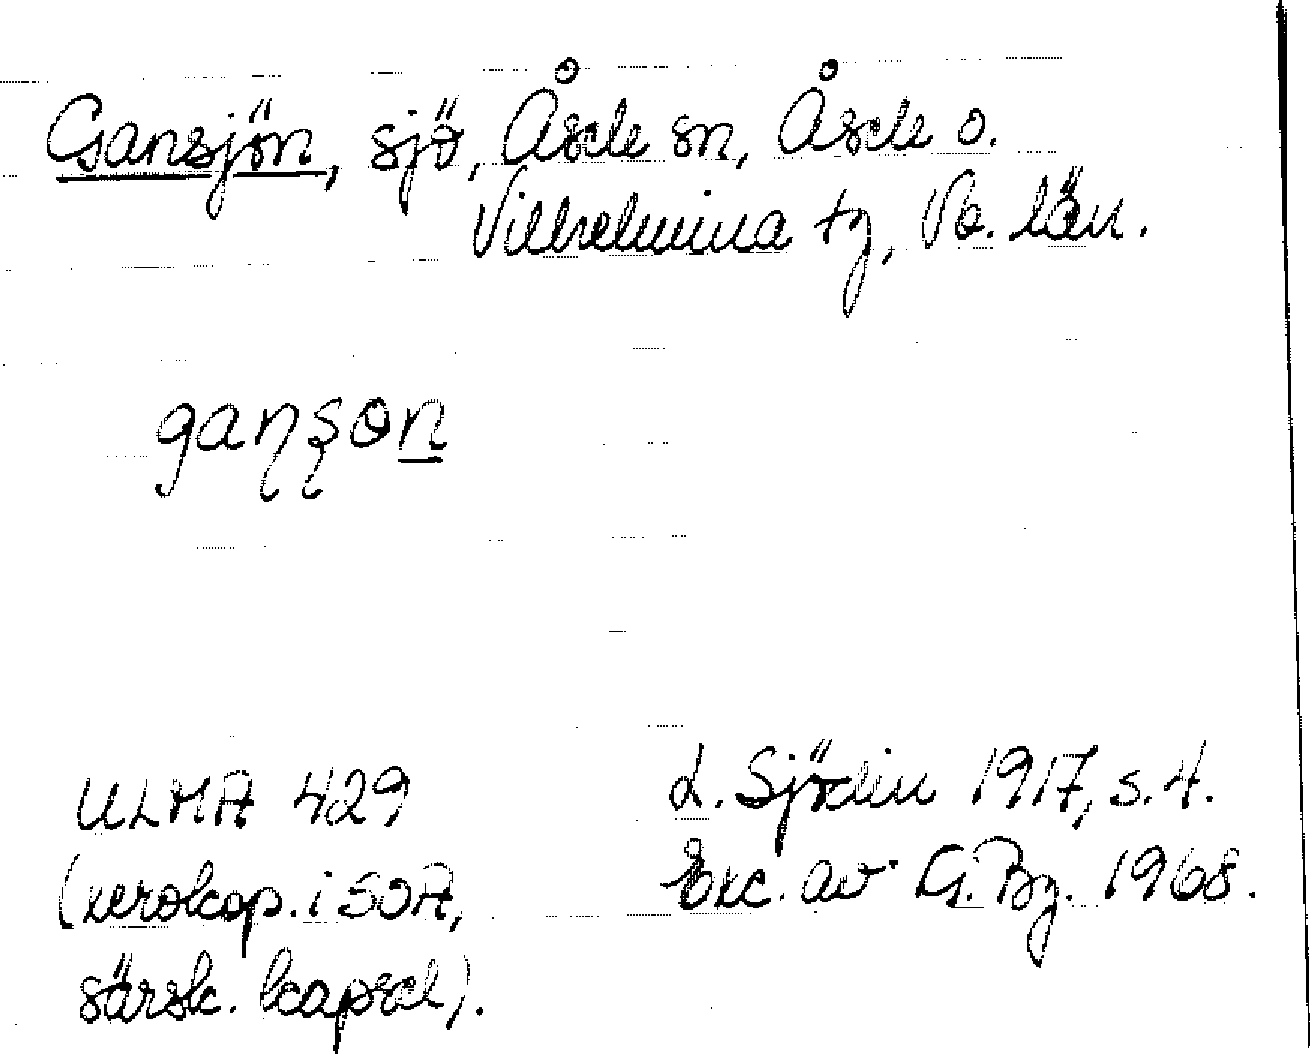 Gansjön, sjö, Åsele sn, Åsele o.
Vilhelmina tg, Vb. län.
gaɳʂon
ULMA 429
(xerokop. i SOA,
särsk. kapsel).
L. Sjödin 1917, s. 4.
Exc. av G. By. 1968.